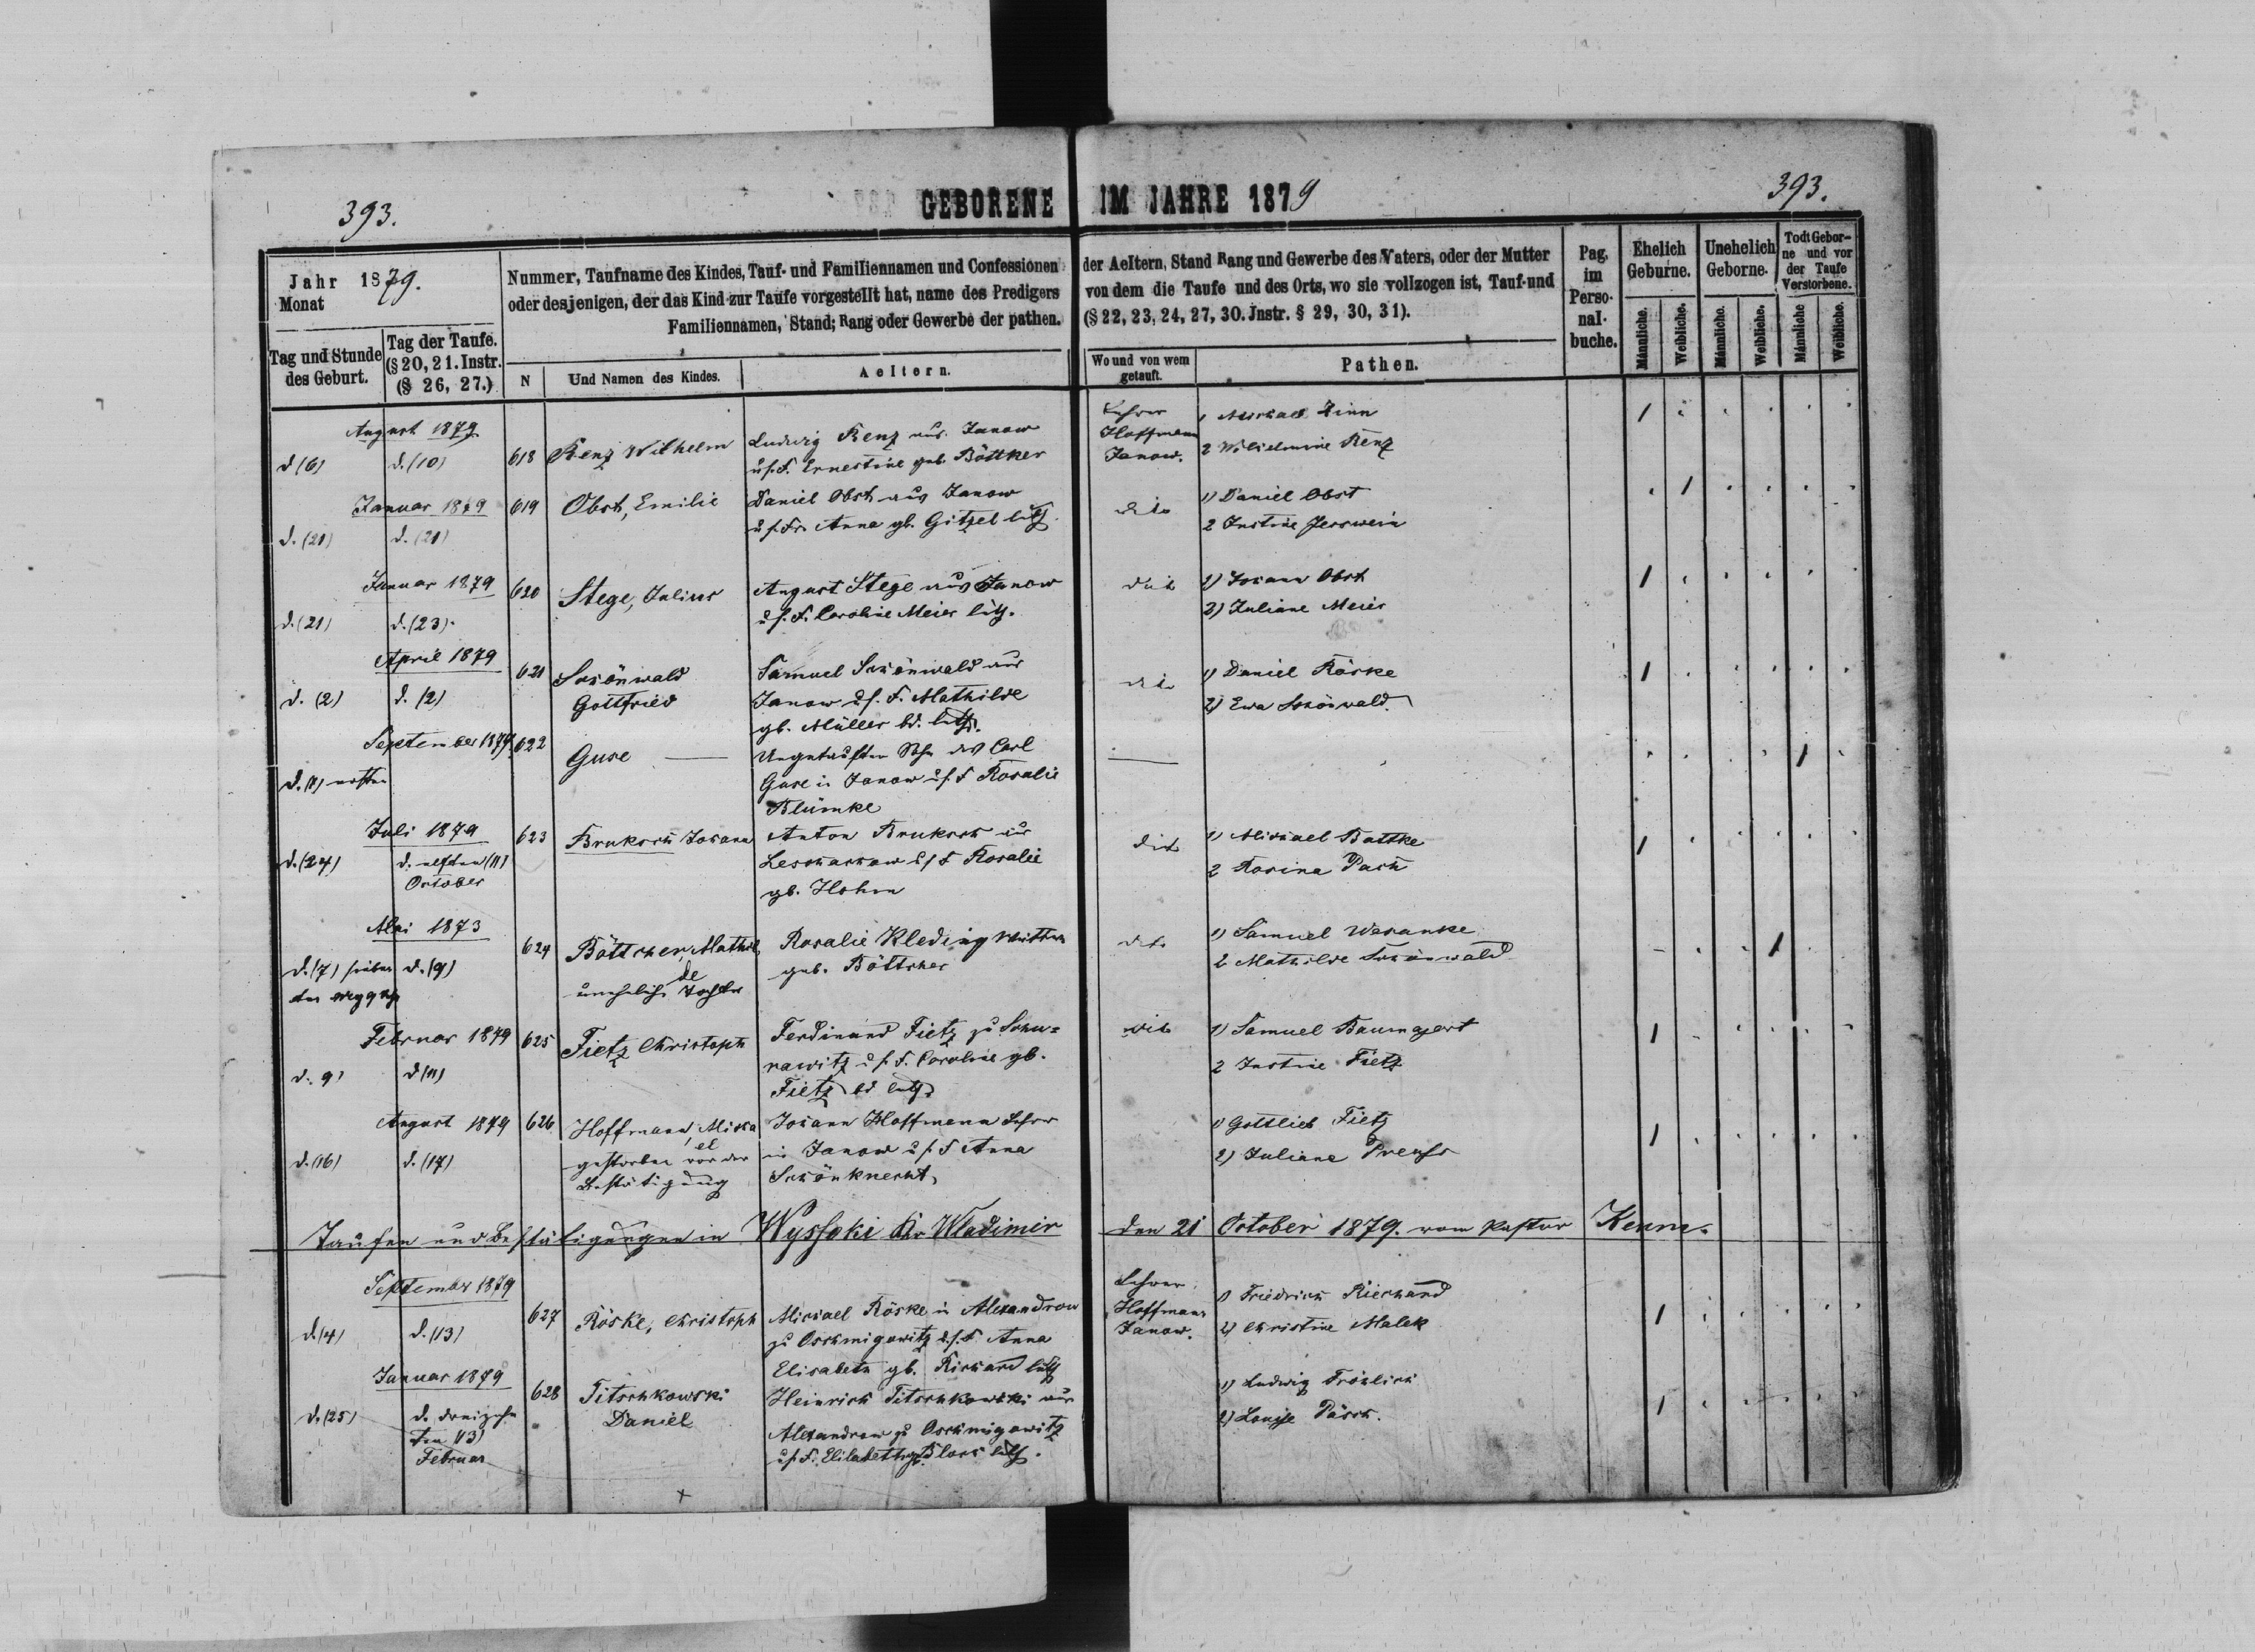 393.
GEBORENE IM JAHRE 1879
393.
Jahr 1879.
Monat
Tag und Stunde des Geburt.
Tag der Taufe. (§ 20, 21. Instr. (§ 26, 27.)
Nummer, Taufname des Kindes, Tauf- und Familiennamen und Confessionen der Aeltern, Stand Rang und Gewerbe des Vaters, oder der Mutter
oder desjenigen, der das Kind zur Taufe vorgestellt hat, name des Predigers von dem die Taufe und des Orts, wo sie vollzogen ist, Tauf-und
Familiennamen, Stand; Rang oder Gewerbe der pathen. (§ 22, 23, 24, 27, 30. Jnstr. § 29, 30, 31).
N
Und Namen des Kindes.
Aeltern.
Wo und von wem getauft.
Pathen.
Pag. im Perso- nal- buche.
Ehelich Geburne.
Unehelich Geborne.
Todt Gebor- ne und vor der Taufe Verstorbene.
Männliche. Weibliche. Männliche. Weibliche. Männliche Weibliche.
August 1879
d (6) d. (10)
618 Renz Wilhelm
Ludwig Renz aus Janow
u. s. F. Ernestine geb. Böttker
Lehrer
Hoffmann
Janow.
1 Michael Zinn
2 Wilhelmine Renz
Januar 1879
d. (21) d. (21)
619 Obst, Emilie
Daniel Obst aus Janow
u. s. Fr. Anna gb. Gitzel luth.
dito
1) Daniel Obst
2 Justine Jesswein
Januar 1879
d. (21) d. (23).
620 Stege, Julius
August Stege aus Janow
u. s. F. Caroline Meier luth.
dito
1) Johann Obst
2) Juliane Meier
April 1879
d. (2) d. (2)
621 Schönwald
Gottfried
Samuel Schönwald aus
Janow u. s. F. Mathilde
gb. Müller bd. luth.
dito
1) Daniel Röske
2) Ewa Schönwald.
September 1879
d. (1) ersten
622 Guse
Ungetaufter Sohn des Carl
Guse in Janow u. s. F Rosalie
Blümke
Juli 1879
d. (24) d. elften (11)
October
623 Bruksch Johann
Anton Bruksch aus
u. s. F Rosalie
gb. Hohm
dito
1) Michael Battke
2 Rosina Pasch
Mai 1873
d. (7) sieben d. (9)
624 Böttcher, Mathil
de
uneheliche Tochter
Rosalie Kleding Wittwe
geb. Böttcher
dito
1) Samuel Weranke
2 Mathilde Schönwald
Februar 1879
d. 9) d (11)
625 Fietz Christoph
Ferdinand Fietz zu Schu=
rawitz u. s. F. Caroline gb.
Fietz bd luth.
dito
1) Samuel Baumgart
2 Justine Fietz
August 1879
d. (16) d. (17)
626 Hoffmann, Micha
el
gestorben vor der
Bestätigung
Johann Hoffmann Lehrer
in Janow u. s. F Anna
Schönknecht,
1) Gottlieb Fietz
2) Juliane Preuss
Taufen und Bestätigungen in Wyssoki Kr Wladimir den 21 October 1879. vom Pastor Kerm.
September 1879
d. (4) d. (13)
627 Röske, Christoph
Michael Röske in Alexandrow
zu Oschmigowitz u. s. F Anna
Elisabeth gb. Richard luth
Lehrer
Hoffmann
Janow.
1) Friedrich Riechard
2) Christine Malek
Januar 1879
d. (25) d. dreizehn
ten (13)
Februar
628 Titschkowski
Daniel
Heinrich Titschkowski aus
Alexandrow zu Oschmigowitz
u. s. F. Elisabeth gb. Block luth.
1) Ludwig Fröhlich
2) Louise Päsch.